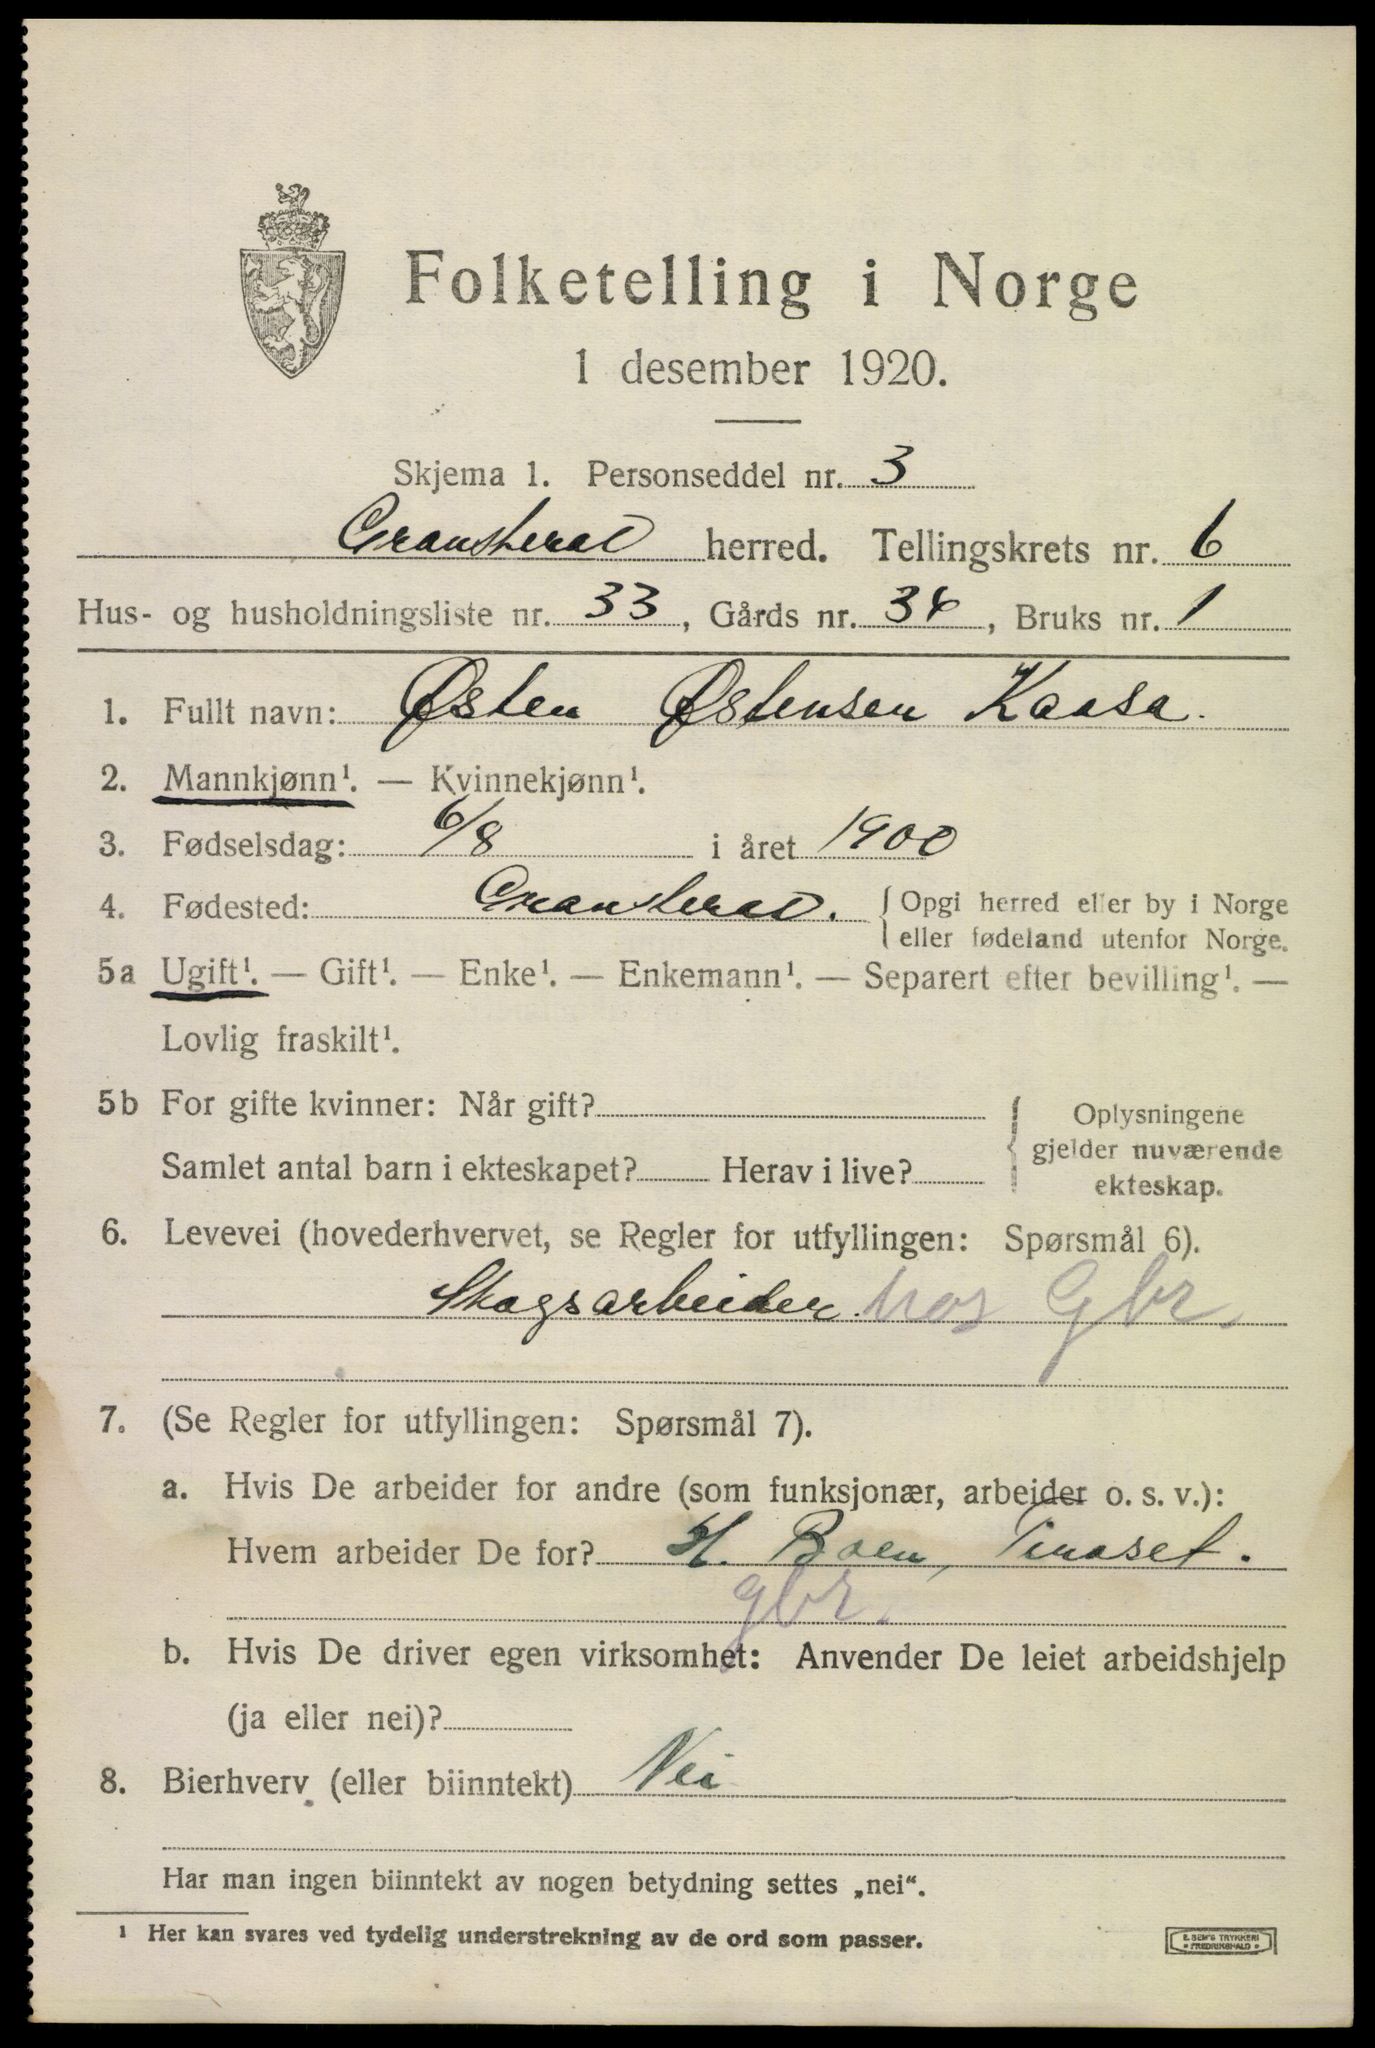 Folketelling i Norge
1 desember 1920.
Skjema 1. Personseddel nr. 3
Gransherad herred. Tellingskrets nr. 6
Hus- og husholdningsliste nr. 33, Gårds nr. 34, Bruks nr. 1
1. Fullt navn: Østen Østensen Kaasa.
2. Mannkjønn¹. — Kvinnekjønn¹.
3. Fødselsdag: 6/8 i året 1900
4. Fødested: Gransherad. { Opgi herred eller by i Norge
eller fødeland utenfor Norge.
5a Ugift¹. — Gift¹. — Enke¹. — Enkemann¹. — Separert efter bevilling¹. —
Lovlig fraskilt¹.
5b For gifte kvinner: Når gift?
Samlet antal barn i ekteskapet? Herav i live?
{ Oplysningene
gjelder nuværende
ekteskap.
6. Levevei (hovederhvervet, se Regler for utfyllingen: Spørsmål 6).
Skogsarbeider hos Gbr.
7. (Se Regler for utfyllingen: Spørsmål 7).
a. Hvis De arbeider for andre (som funksjonær, arbeider o. s. v.):
Hvem arbeider De for? H. Boen, Tinoset.
gbr.
b. Hvis De driver egen virksomhet: Anvender De leiet arbeidshjelp
(ja eller nei)?
8. Bierhverv (eller biinntekt) Nei
Har man ingen biinntekt av nogen betydning settes „nei“.
¹ Her kan svares ved tydelig understrekning av de ord som passer.
E. SEM'S TRYKKERI
• FREDRIKSHALD •